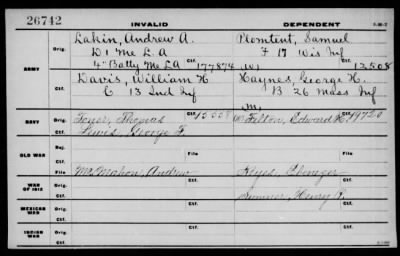 26742 INVALID DEPENDENT
ARMY
Orig. Lakin, Andrew A. Plomtent, Samuel
D 1 Me L A F 17 Wis Inf
4" Batty Me L A Ctf. 177874 W Ctf. 12508
Orig. Davis, William H. Haynes, George H.
C 13 Ind Inf B 26 Mass Inf
Ctf. M
NAVY Orig. Toner, Thomas Ctf. 15558 W Felton, Edward K. Ctf. 19720
Orig. Lewis, George F. Ctf. Ctf.
OLD WAR Rej. File File
Ctf.
WAR OF 1812 Orig. McMahon, Andrew Ctf. Keyes, Ebenezer Ctf.
MEXICAN WAR Orig. Ctf. Sumner, Henry P. Ctf.
INDIAN WAR Orig. Ctf. Ctf.